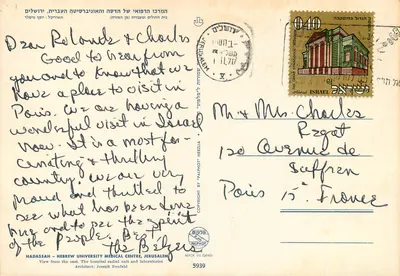 המרכז הרפואי של הדסה והאוניברסיטה העברית, ירושלים
Dear Rolande & Charles
Good to hear from
you and to know that we
have a place to visit in
Paris. We are having a
wonderful visit in Israel
now. It is a most fas-
cinating & thrilling
country. We are very
proud and thrilled to
see what has been done
here and to see the spirit
of the people. Best
The Belzers
HADASSAH - HEBREW UNIVERSITY MEDICAL CENTRE, JERUSALEM
View from the east. The hospital radial unit and laboratories
Architect: Joseph Neufeld
5939
COPYRIGHT BY "PALPHOT" HERZLIA
ירושלים
0.40
ISRAEL
ישראל
Mr & Mrs Charles
120 Avenue de
Suffren
Paris 15e France